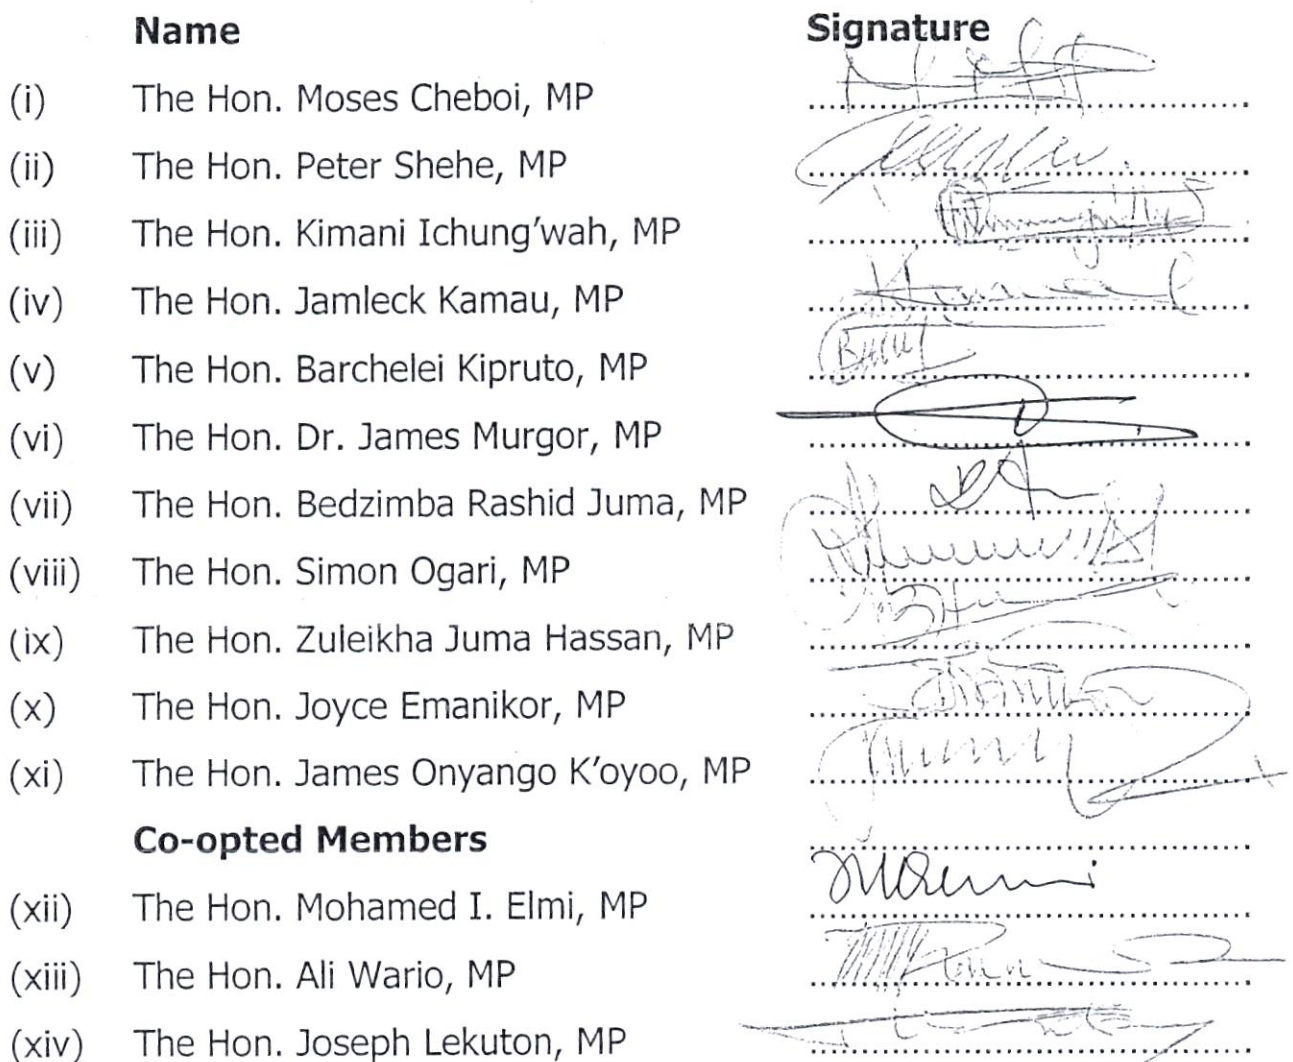 Name Signature
(i) The Hon. Moses Cheboi, MP ........................................
(ii) The Hon. Peter Shehe, MP ........................................
(iii) The Hon. Kimani Ichung'wah, MP ........................................
(iv) The Hon. Jamleck Kamau, MP ........................................
(v) The Hon. Barchelei Kipruto, MP ........................................
(vi) The Hon. Dr. James Murgor, MP ........................................
(vii) The Hon. Bedzimba Rashid Juma, MP ........................................
(viii) The Hon. Simon Ogari, MP ........................................
(ix) The Hon. Zuleikha Juma Hassan, MP ........................................
(x) The Hon. Joyce Emanikor, MP ........................................
(xi) The Hon. James Onyango K'oyoo, MP ........................................
Co-opted Members ........................................
(xii) The Hon. Mohamed I. Elmi, MP ........................................
(xiii) The Hon. Ali Wario, MP ........................................
(xiv) The Hon. Joseph Lekuton, MP ........................................